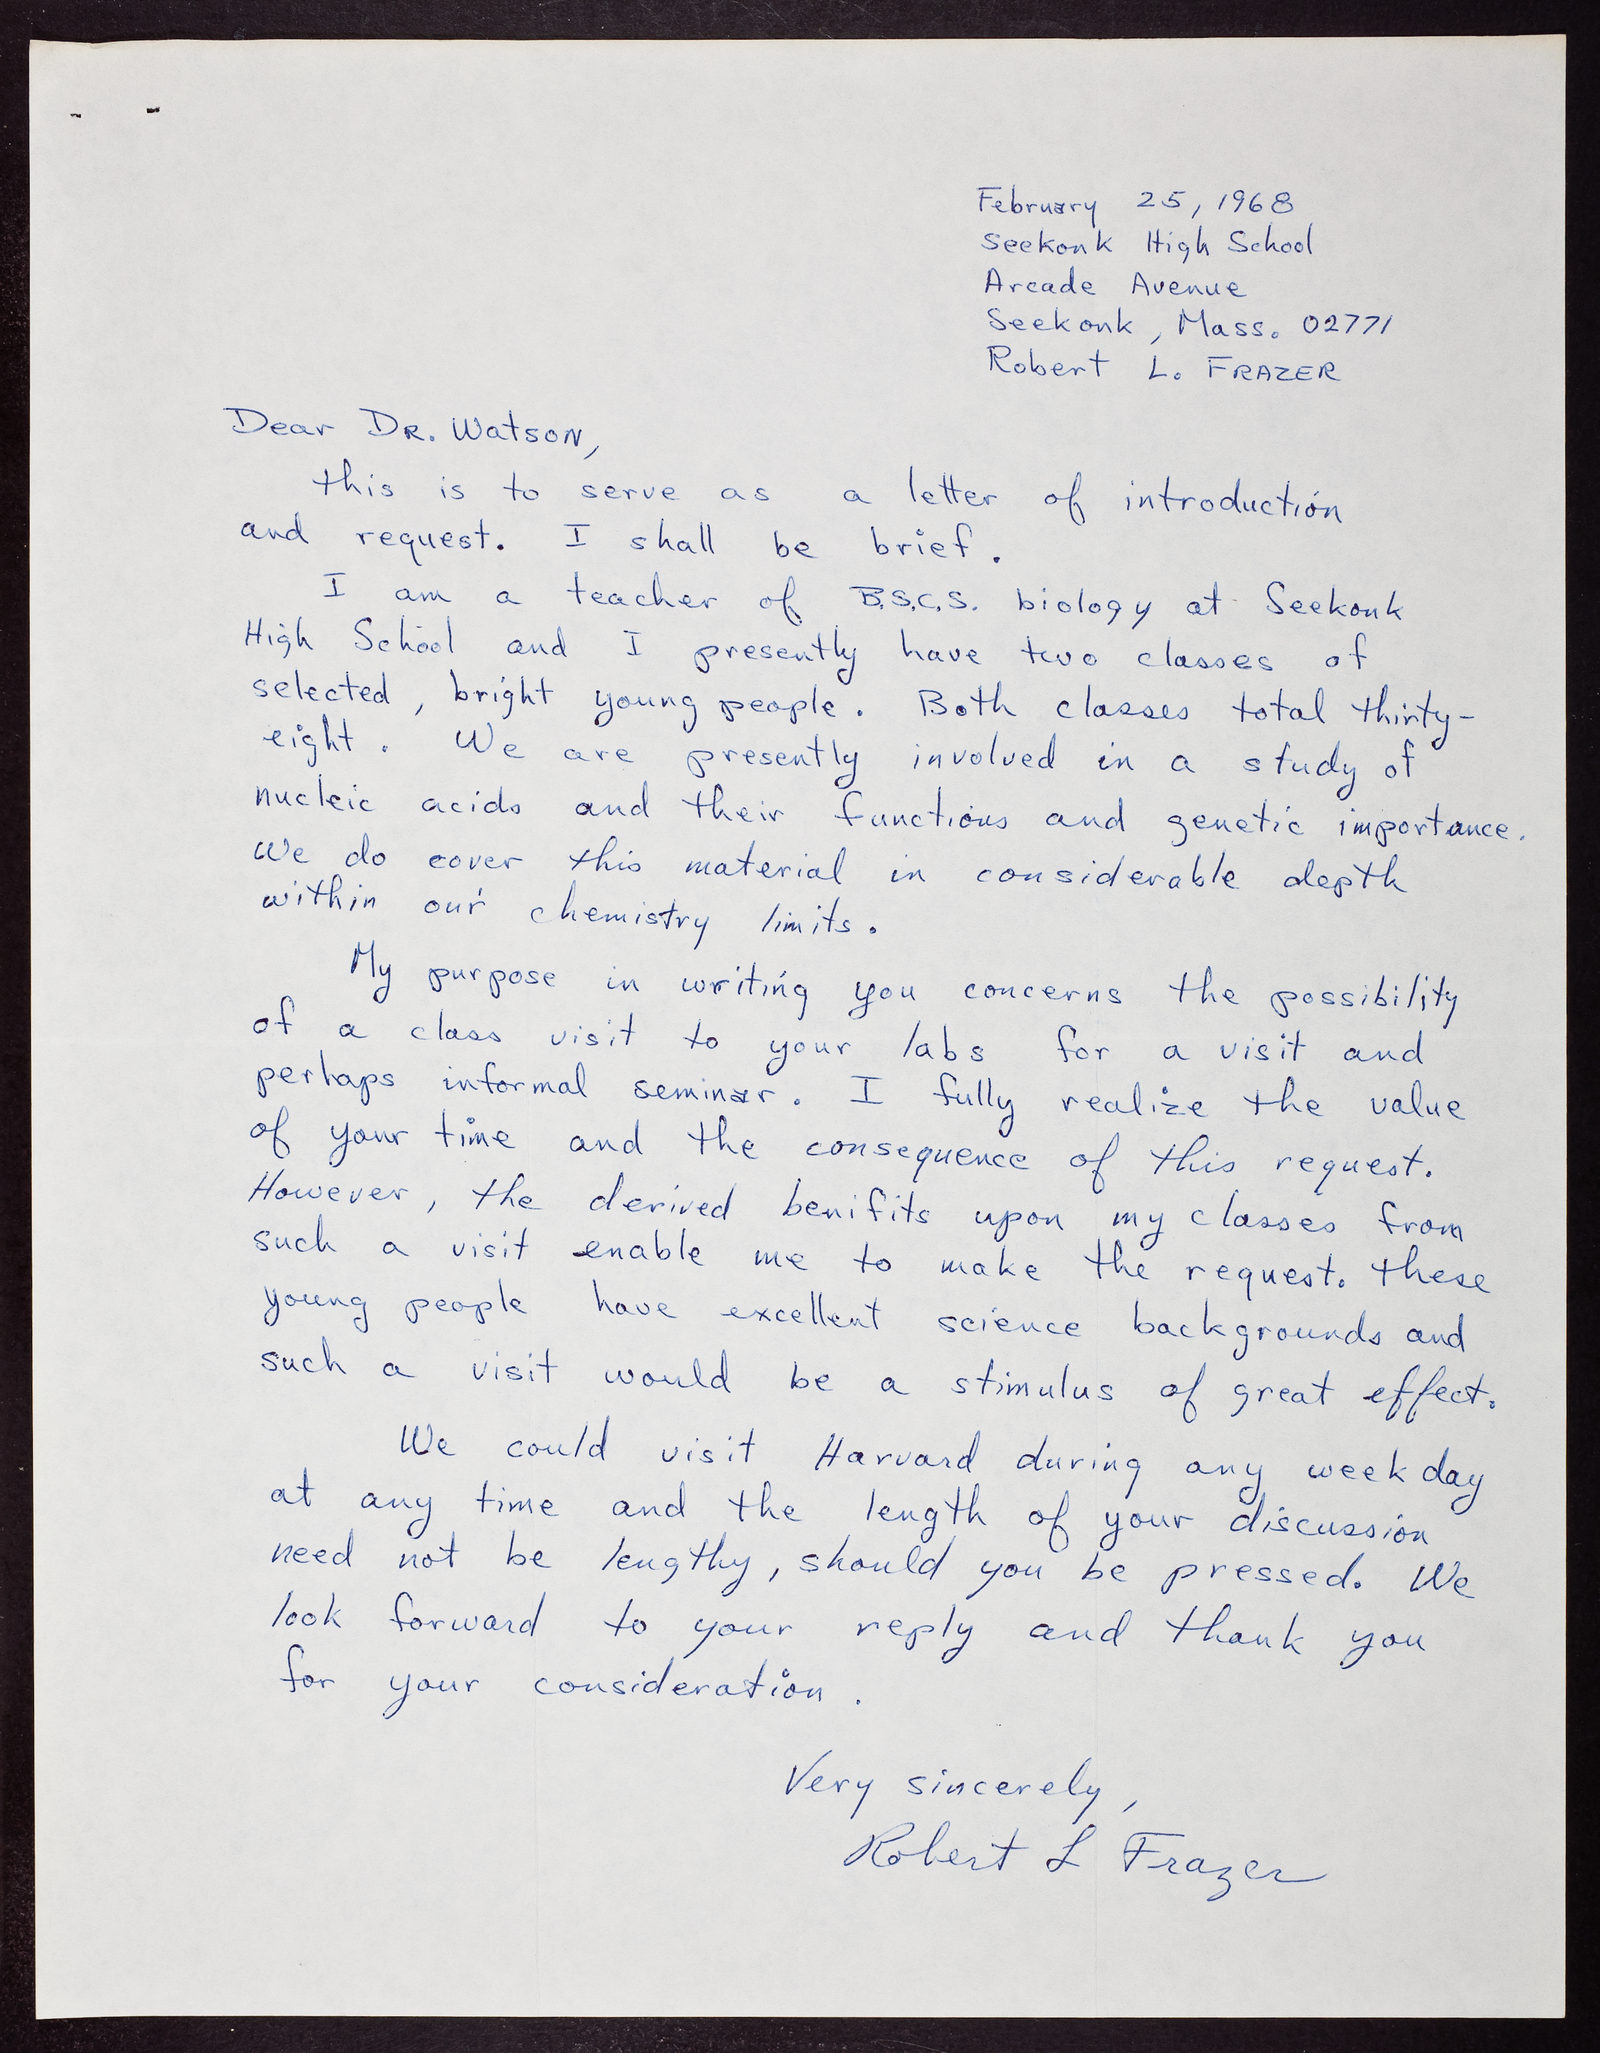 February 25, 1968
Seekonk High School
Arcade Avenue
Seekonk, Mass. 02771
Robert L. FRAZER
Dear DR. Watson,
this is to serve as a letter of introduction
and request. I shall be brief.
I am a teacher of B.S.C.S. biology at Seekonk
High School and I presently have two classes of
selected, bright young people. Both classes total thirty-
eight. We are presently involved in a study of
nucleic acids and their functions and genetic importance.
We do cover this material in considerable depth
within our chemistry limits.
My purpose in writing you concerns the possibility
of a class visit to your labs for a visit and
perhaps informal seminar. I fully realize the value
of your time and the consequence of this request.
However, the derived benifits upon my classes from
such a visit enable me to make the request. These
young people have excellent science backgrounds and
such a visit would be a stimulus of great effect.
We could visit Harvard during any week day
at any time and the length of your discussion
need not be lengthy, should you be pressed. We
look forward to your reply and thank you
for your consideration.
Very sincerely,
Robert L Frazer